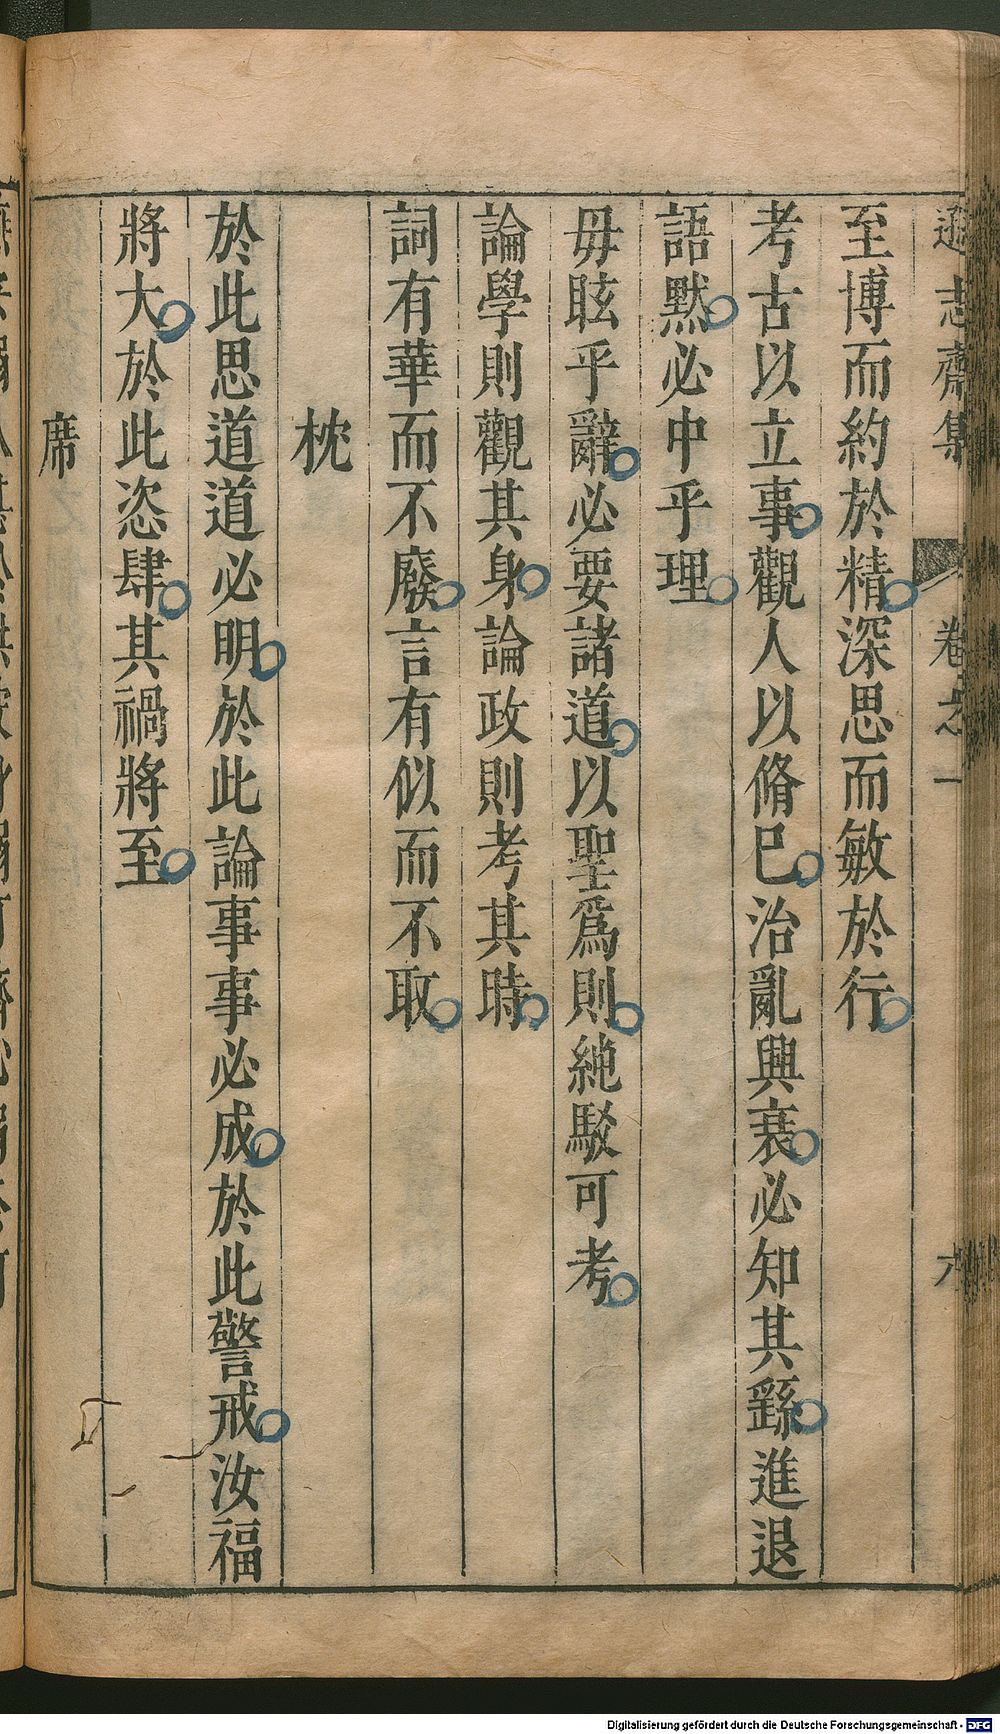 遜志齋集 卷之一 六
至博而約於精深思而敏於行
考古以立事觀人以脩已治亂興衰必知其繇進退
語默必中乎理
毋眩乎辭必要諸道以聖爲則純駁可考
論學則觀其身論政則考其時
詞有華而不廢言有似而不取
枕
於此思道道必明於此論事事必成於此警戒汝福
將大於此恣肆其禍將至
席
Digitalisierung gefördert durch die Deutsche Forschungsgemeinschaft - DFG